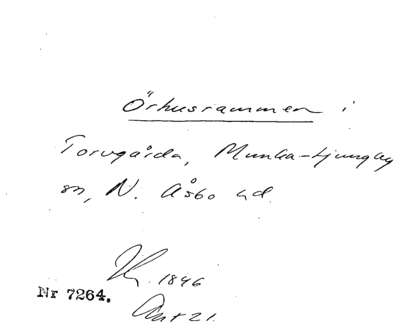 Örhusrammen i
Torvgårda, Munka-Ljungby
sn, N. Åsbo hd.
1846
Nr 7264.